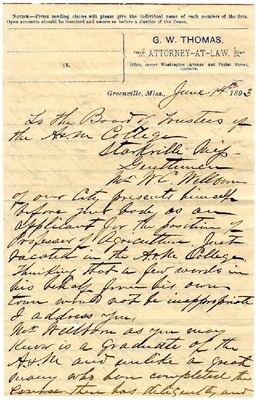 NOTICE.—Firms sending claims will please give the individual name of each member of the firm.
Open accounts should be itemized and sworn to before a Justice of the Peace.
G. W. THOMAS,
ATTORNEY-AT-LAW,
Office, corner Washington Avenue and Poplar Street,
upstairs.
Greenville, Miss., June 14th 1893
To the Board of Trustees of
the A&M College
Starkville Miss
Gentlemen
Mr W. C. Wellborn
of our City presents himself
before that body as an
applicant for the position of
Professor of Agriculture just
vacated in the A&M College.
Thinking that a few words in
his behalf from his own
town would not be inappropriate
I address you,
Mr Wellborn as you may
know is a graduate of the
A&M and unlike a great
many who have completed the
course there has diligently and